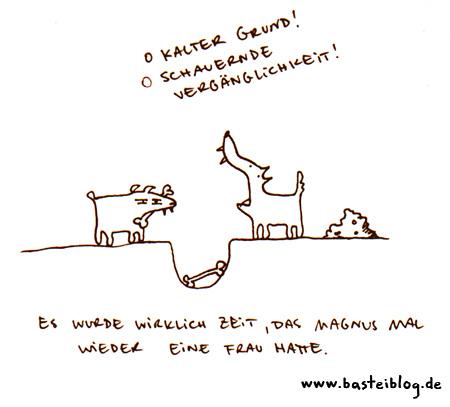 O KALTER GRUND!
O SCHAUERNDE
VERGÄNGLICHKEIT!
ES WURDE WIRKLICH ZEIT, DAS MAGNUS MAL
WIEDER EINE FRAU HATTE.
www.basteiblog.de